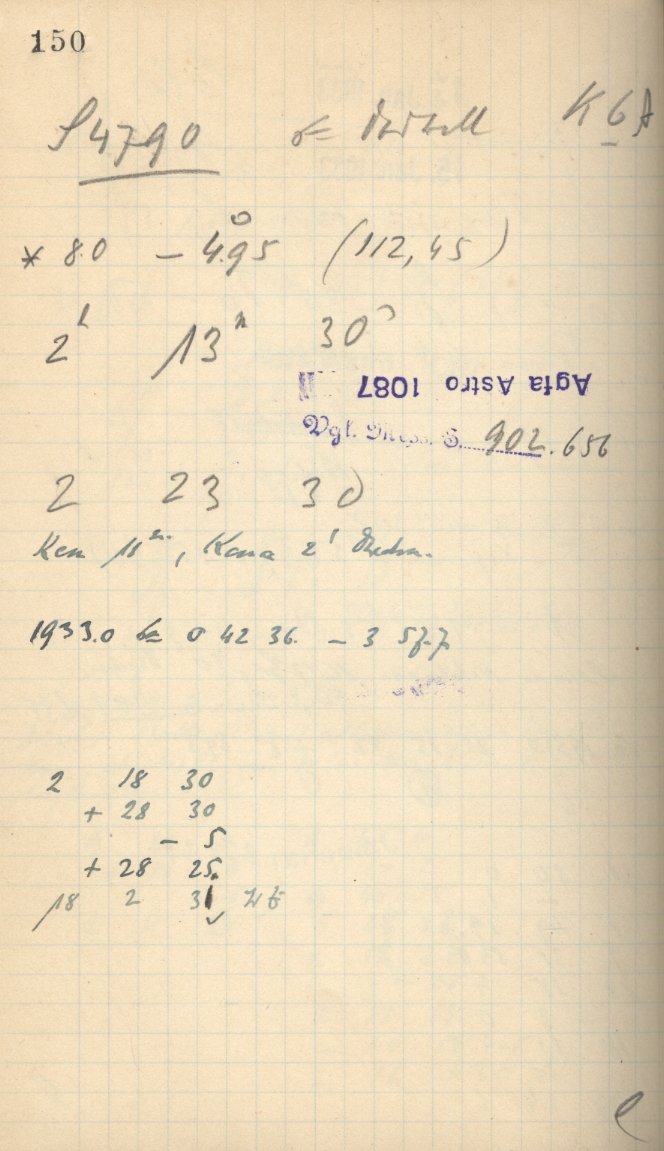 150
S 4790 K 6A
* 8.0 – 4.95 (112,45)
2 13 30
Agfa Astro 1087
Vgl. Mess. S. 902.656
2 23 30
Kern 11m, Koma 2'
1933.0 0 42 36. – 3 57.7
2 18 30
+ 28 30
– 5
+ 28 25.
18 2 31